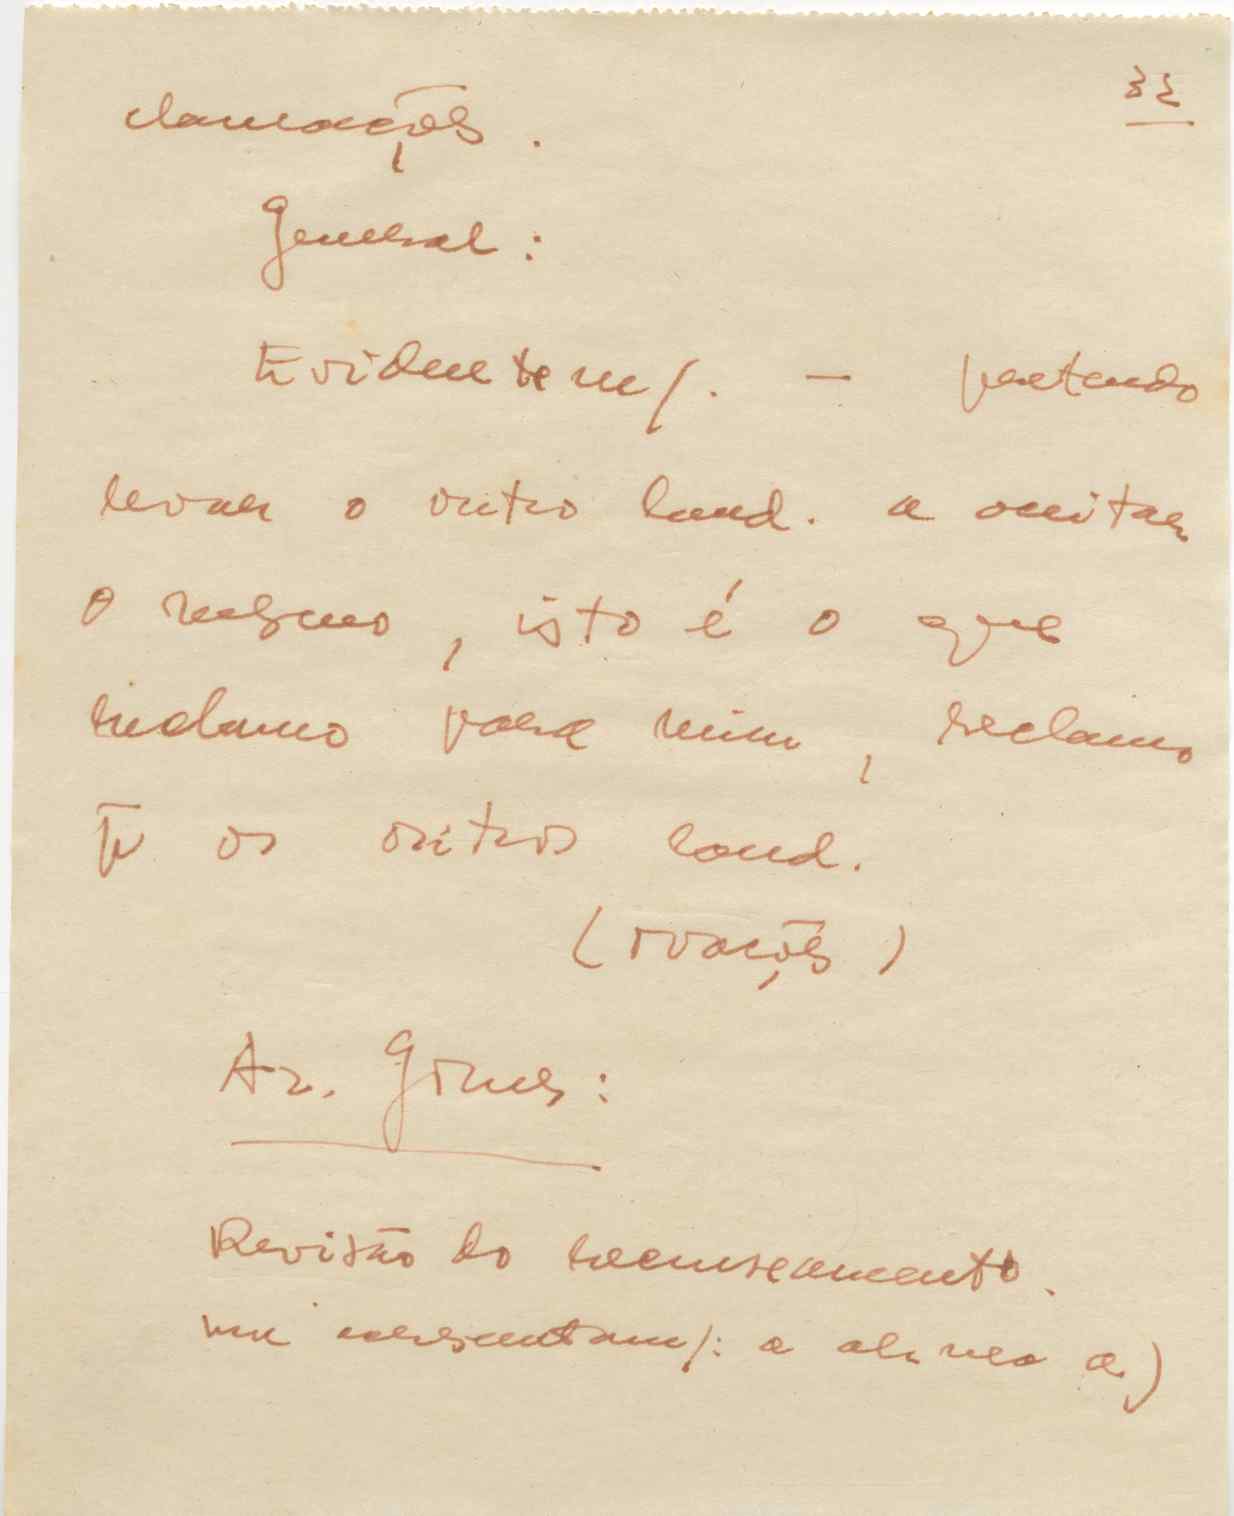 33
clamações.
General:
Evidentem/. — pretendo
levar o outro cand. a aceitar
o mesmo, isto é o que
reclamo para mim, reclamo
p̄ os outros cand.
(ovações)
Ar. Gomes:
Revisão do recenseamento.
a alínea a)